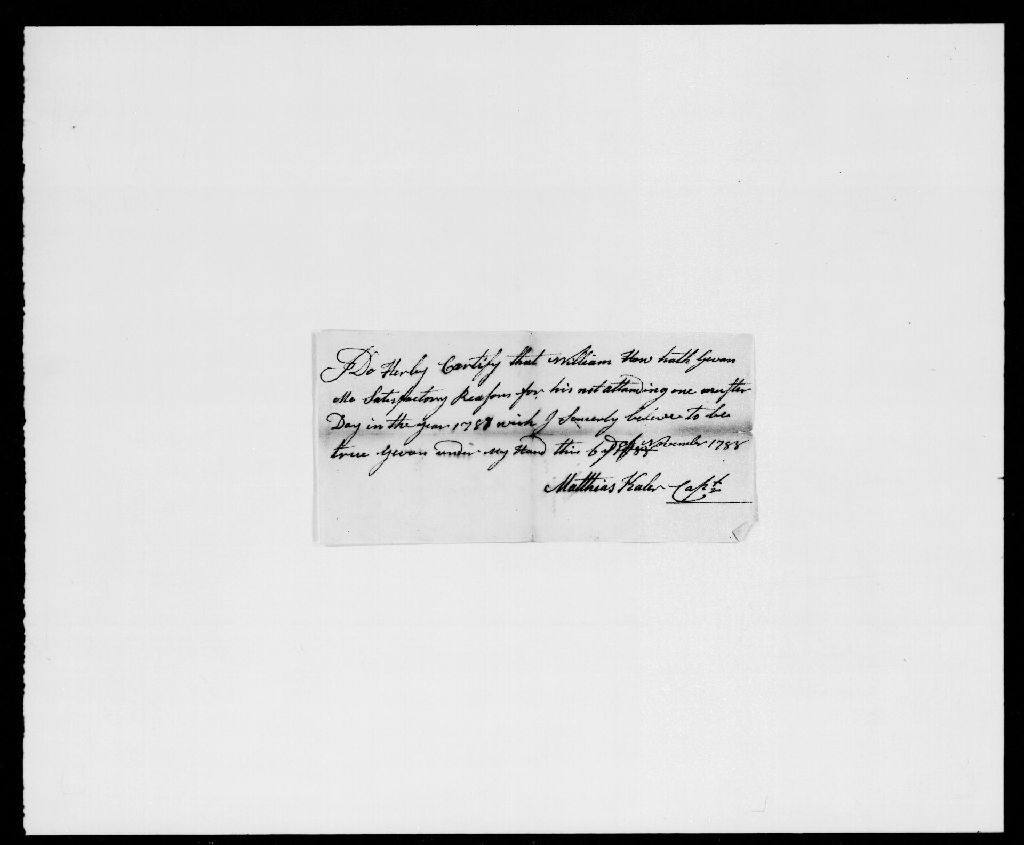 I Do Herby Certify that William How hath Gevan
Me Satisfactory Reasons for his not attanding one
Day in the year 1788 wich I Sincerly beleive to be
true Gevan under My Hand this 6 November 1788
Matthias Kaler Capt